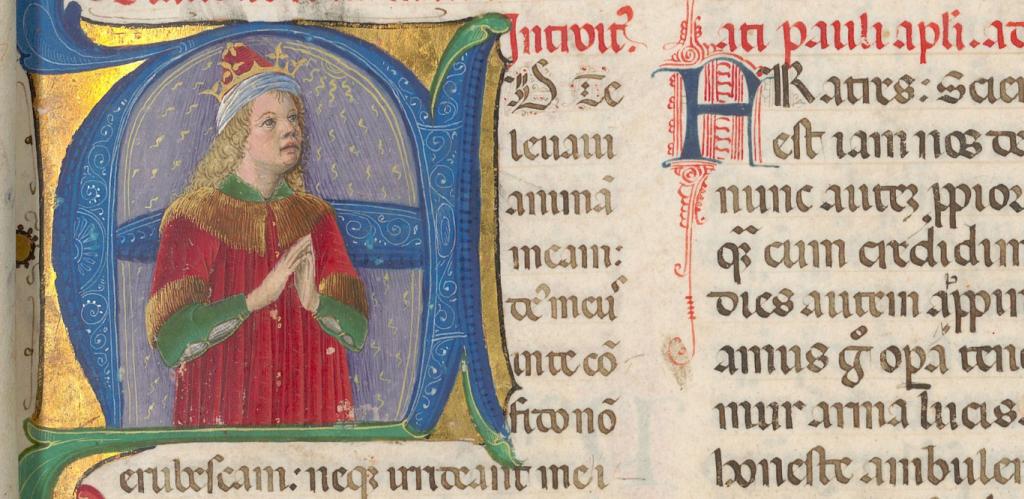 Introit9
A D Te
leuaui
animā
meam:
de9 meu9
in te cō
fido nō
erubescam: neqz irrideant me i
Lati pauli apli. ad
FRatres: Scien
est iam nos de
nunc autez ppior
qz cum credidim
dies autem appin
amus g opa tene
mur arma lucis.
honeste ambulem